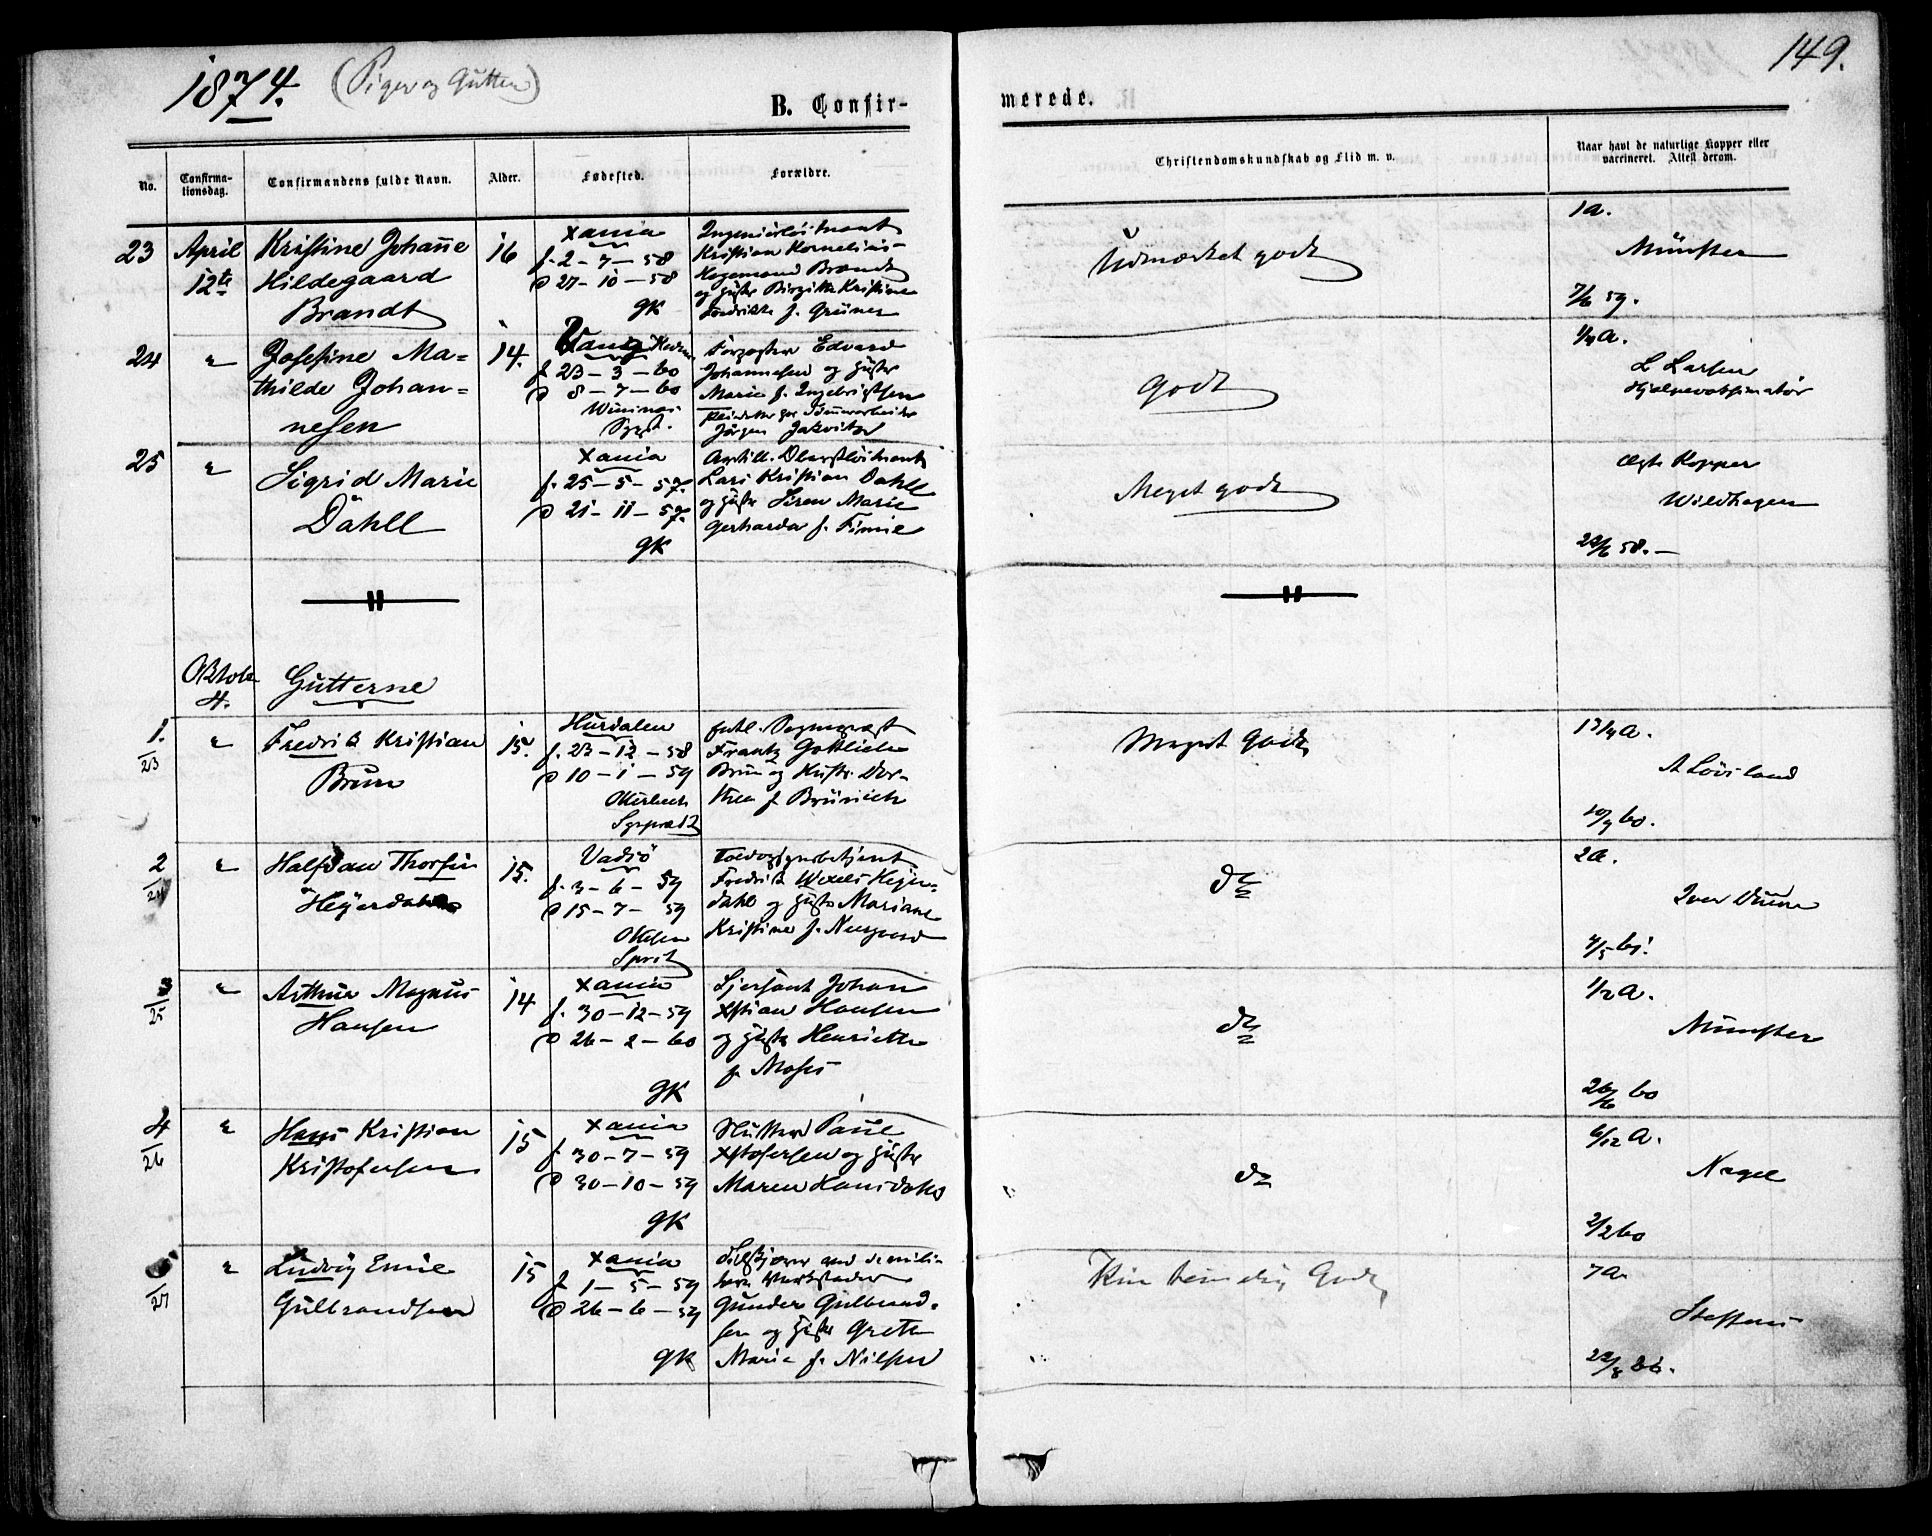 1874. (Piger og Gutter)
149.
B. Confir-
merede.
No.
Confirma-
tionsdag.
Confirmandens fulde Navn.
Alder.
Fødested.
Forældre.
Christendomskundskab og Flid m. v.
Naar havt de naturlige Kopper eller
vaccineret. Attest derom.
23 April 12te
Kristine Johanne
Hildegaard
Brandt
16
Xania
f. 2 - 7 - 58
D 27 - 10 - 58
GK
Ingeniørløitnant
Kristian Kornelius
Hagemand Brandt
og Hustr Birgitte Kristine
f. Grüner
Udmærket godt
1a.
Münster
7/6 59.
24 "
Josefine Ma=
thilde Johan=
nesen
14.
Vang Hedem.
f 23 - 3 - 60
D 8 - 7 - 60
Edvard
Johannesen og Hustr
Marie f. Ingebrigtsen
Jørgen
Godt
1/4 A.
L Larsen
Hjælpevaksinatør
25 "
Sigrid Marie
Dahll
Xania
f. 25 - 5 - 57.
D 21 - 11 - 57.
GK
Artill. Oberstløitnant
Lars Kristian Dahll
og Hustr Siren Marie
Gerharda f.
Meget godt
ægte Kopper
Wildhagen
22/6 58. -
Oktob
4.
Gutterne
1.
23
"
Fredrik Kristian
Brun
15.
Hurdalen
f. 23 - 12 - 58
D 10 - 1 - 59
Sogneprest
Frantz Gottlieb
Brun og Hustr. Dor-
thea f. Brünich
Meget Godt
13 1/4 A.
A Løvsland
10/9 60.
2
24
"
Halfdan Thorfin
Heyerdahl
15.
Vadsø
f. 3 - 6 - 59
D 15 - 7 - 59
Toldopsynsbetjent
Fredrik Wexels Heyer=
dahl og Hustr Mariane
Kristine f. Neergaard
do
2a.
Iver Duun
4/5 61.
3
25
"
Arthur Magnus
Hansen
14
Xania
f. 30 - 12 - 59
D 26 - 2 - 60
GK
Sjersant Johan
Xstian Hansen
og Hustr Henriette
f. Moses
do
1/2 A.
Münster
26/6 60
4
26
"
Hans Kristian
Kristofersen
15
Xania
f. 30 - 7 - 59
D 30 - 10 - 59
GK
Paul
Xstofersen og Hustr
Maren Hansdatter
do
6/12 A.
Nagel
2/2 60
27
"
Ludvig Emil
Gulbrandsen
15
Xania
f 1 - 5 - 59
D 26 - 6 - 59
GK
ved de mili-
tære Værksteder
Gunder Gulbrand-
sen og Hustr Grethe
Marie f. Nilsen
Godt
7A.
Steffens
22/8 66.